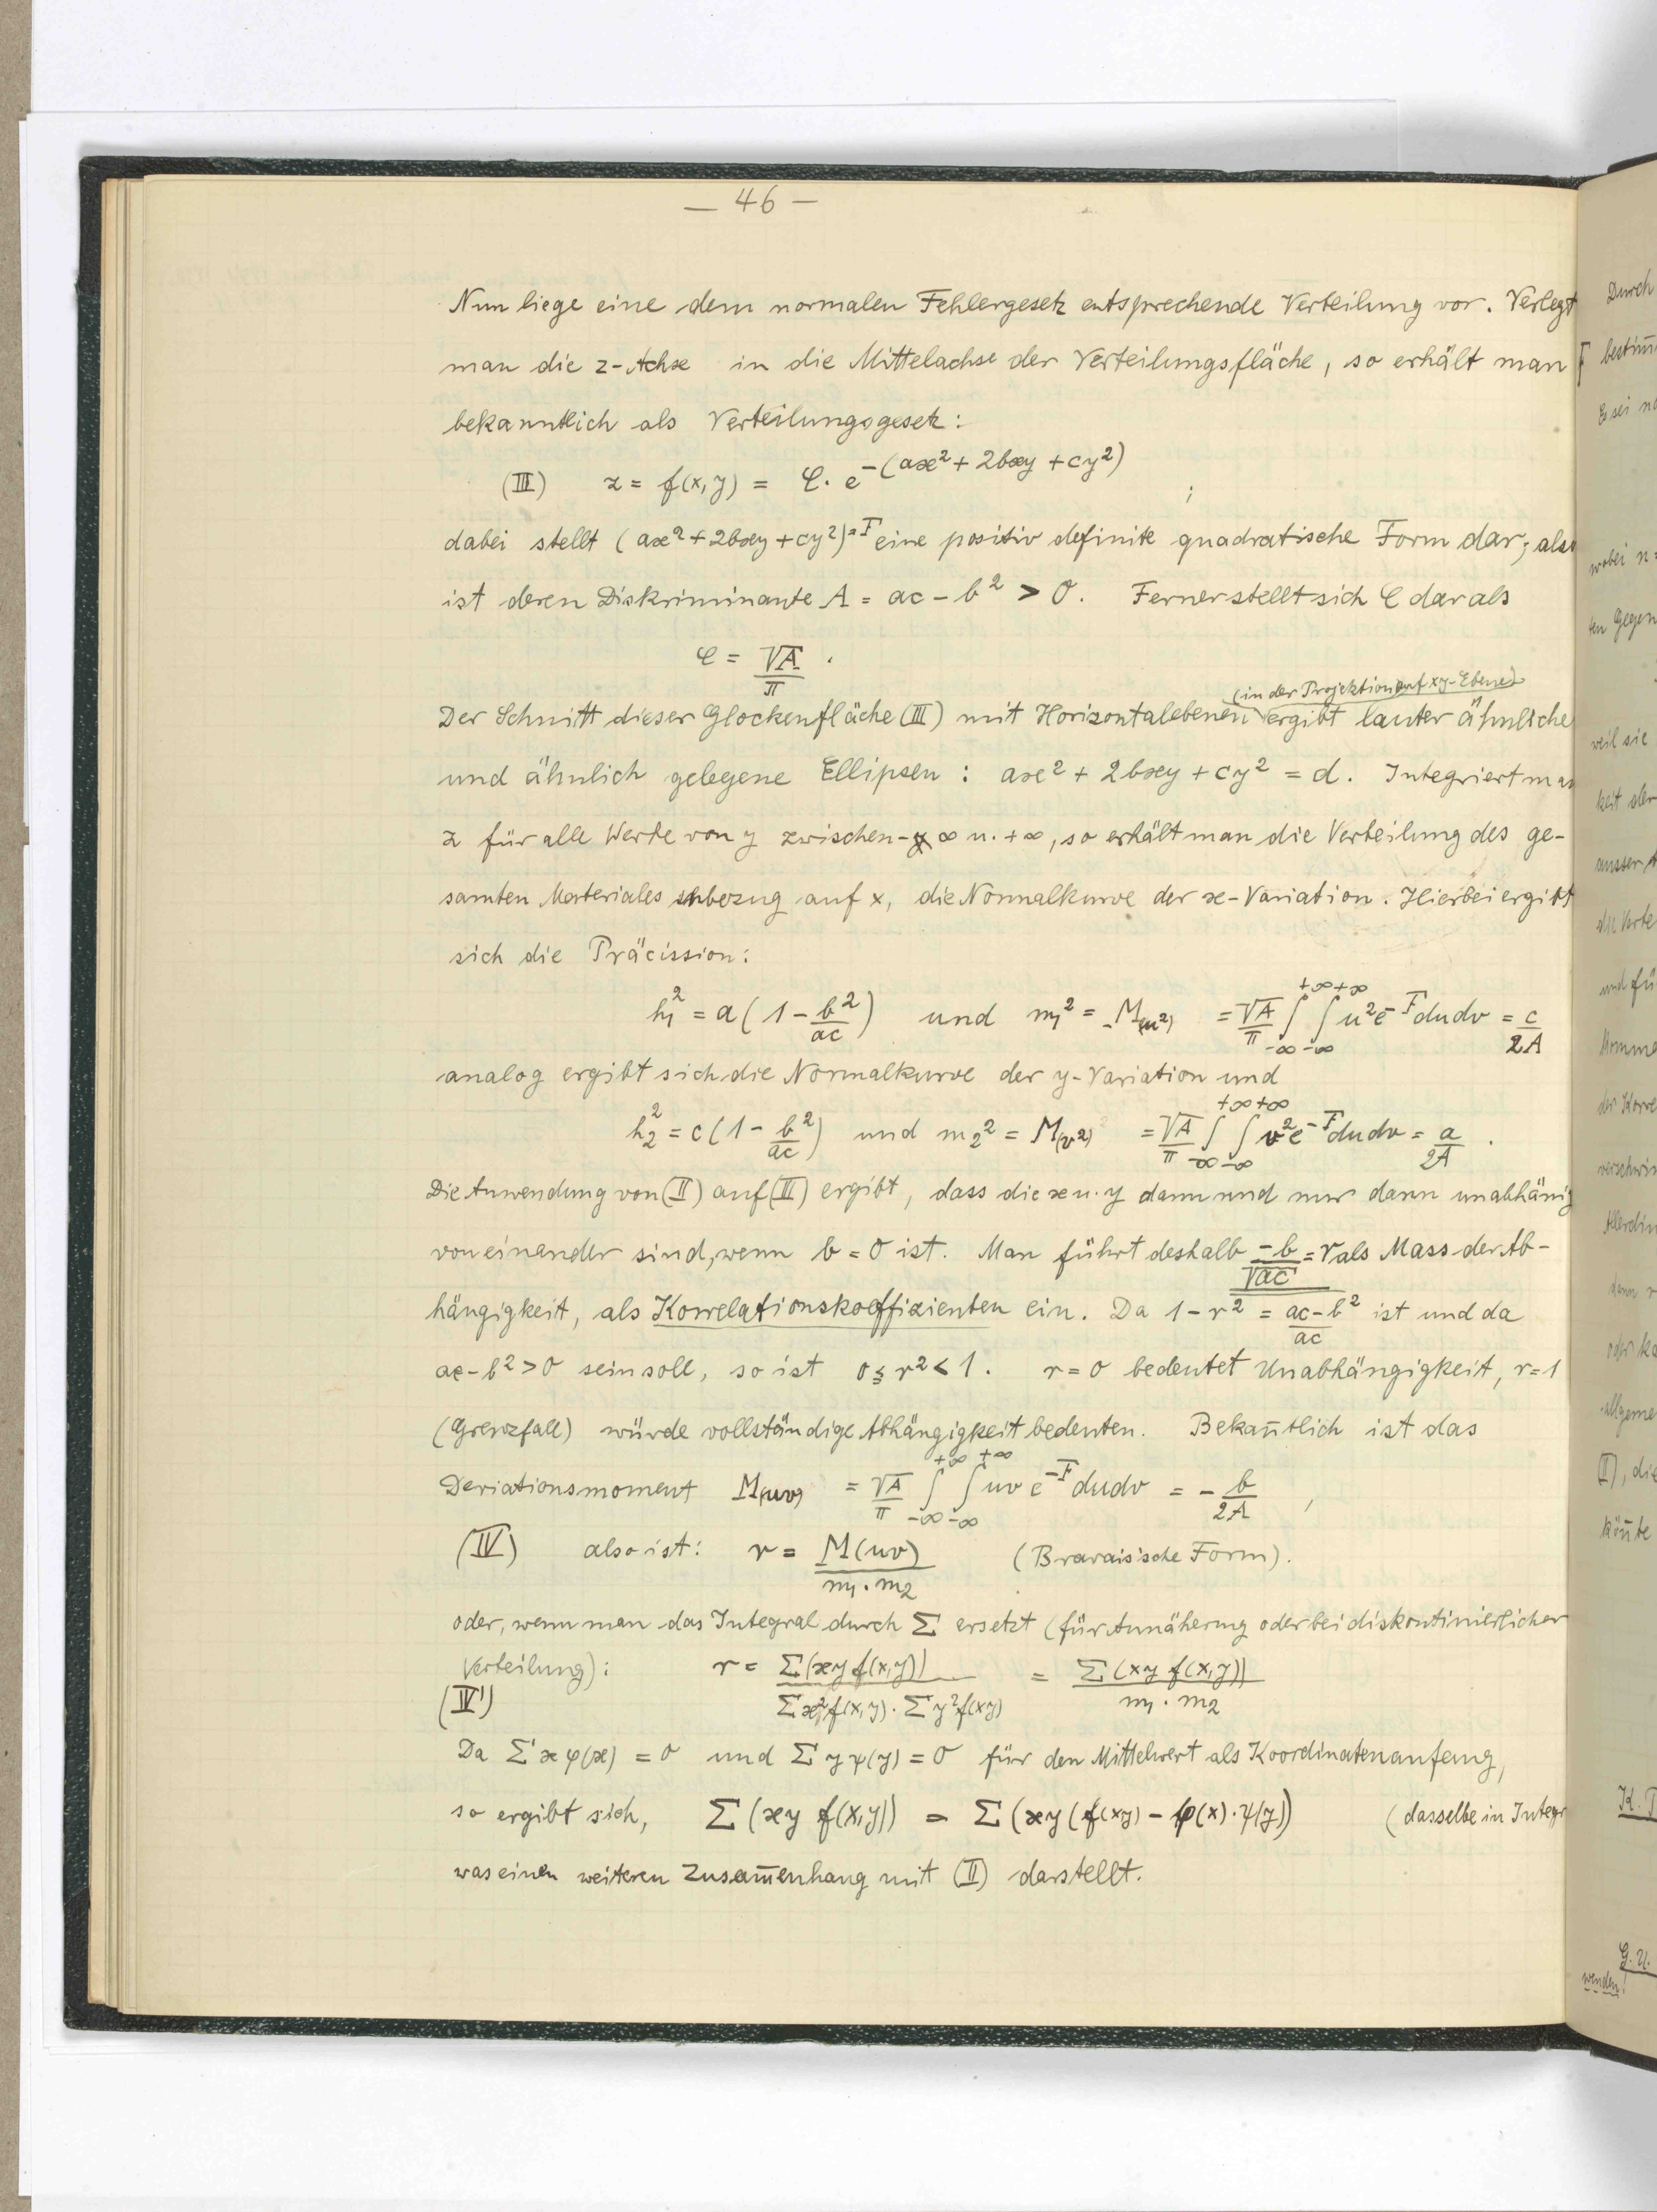 — 46 —
Nun liege eine dem normalen Fehlergesetz entsprechende Verteilung vor. Verlegt
man die z-Achse in die Mittelachse der Verteilungsfläche, so erhält man
bekanntlich als Verteilungsgesetz:
(III) z = f(x,y) = C. e^-(ax²+2bxy+cy²) ;
dabei stellt (ax²+2bxy+cy²)=F eine positiv definite quadratische Form dar; also
ist deren Diskriminante A = ac-b² > 0. Ferner stellt sich C dar als
C = √A/π .
(in der Projektion auf xy-Ebene)
Der Schnitt dieser Glockenfläche (III) mit Horizontalebenen ergibt lauter ähnliche
und ähnlich gelegene Ellipsen : ax² + 2bxy + cy² = d. Integriert man
z für alle Werte von y zwischen -∞ u. +∞, so erhält man die Verteilung des ge-
samten Materiales inbezug auf x, die Normalkurve der x-Variation. Hierbei ergibt
sich die Präcission:
h₁² = a(1 - b²/ac) und m₁² = M(u²) = √A/π ∫_{-∞}^{+∞} ∫_{-∞}^{+∞} u²e^-F dudv = c/2A
analog ergibt sich die Normalkurve der y-Variation und
h₂² = c(1 - b²/ac) und m₂² = M(v²) = √A/π ∫_{-∞}^{+∞} ∫_{-∞}^{+∞} v²e^-F dudv = a/2A .
Die Anwendung von (II) auf (III) ergibt, dass die x u. y dann und nur dann unabhänig
von einander sind, wenn b = 0 ist. Man führt deshalb -b/√ac = r als Mass der Ab-
hängigkeit, als Korrelationskoeffizienten ein. Da 1-r² = ac-b²/ac ist und da
ac-b²>0 sein soll, so ist 0≤r²<1. r=0 bedeutet Unabhängigkeit, r=1
(Grenzfall) würde vollständige Abhängigkeit bedeuten. Bekan̄tlich ist das
Deviationsmoment M(uv) = √A/π ∫_{-∞}^{+∞} ∫_{-∞}^{+∞} uv e^-F dudv = - b/2A ,
(IV) also ist: r = M(uv)/m₁.m₂ (Bravais'sche Form).
oder, wenn man das Integral durch Σ ersetzt (für Annäherung oder bei diskontinierlicher
Verteilung): r = Σ(xy f(x,y))/Σx²f(x,y).Σy²f(xy) = Σ(xy f(x,y))/m₁.m₂
(IV')
Da Σxφ(x) = 0 und Σyψ(y) = 0 für den Mittelwert als Koordinatenanfang,
so ergibt sich, Σ(xy f(x,y)) = Σ(xy(f(xy) - φ(x).ψ(y)) (dasselbe in Integr
was einen weiteren Zusam̄enhang mit (II) darstellt.
Durch
bestim̄
Es sei
wobei n=
ten Gegen
weil sie
keit der
ausser
und fü
der Korre
verschwin
Allerdin
denn
oder
Allgeme
(II), die
kön̄te
wenden!